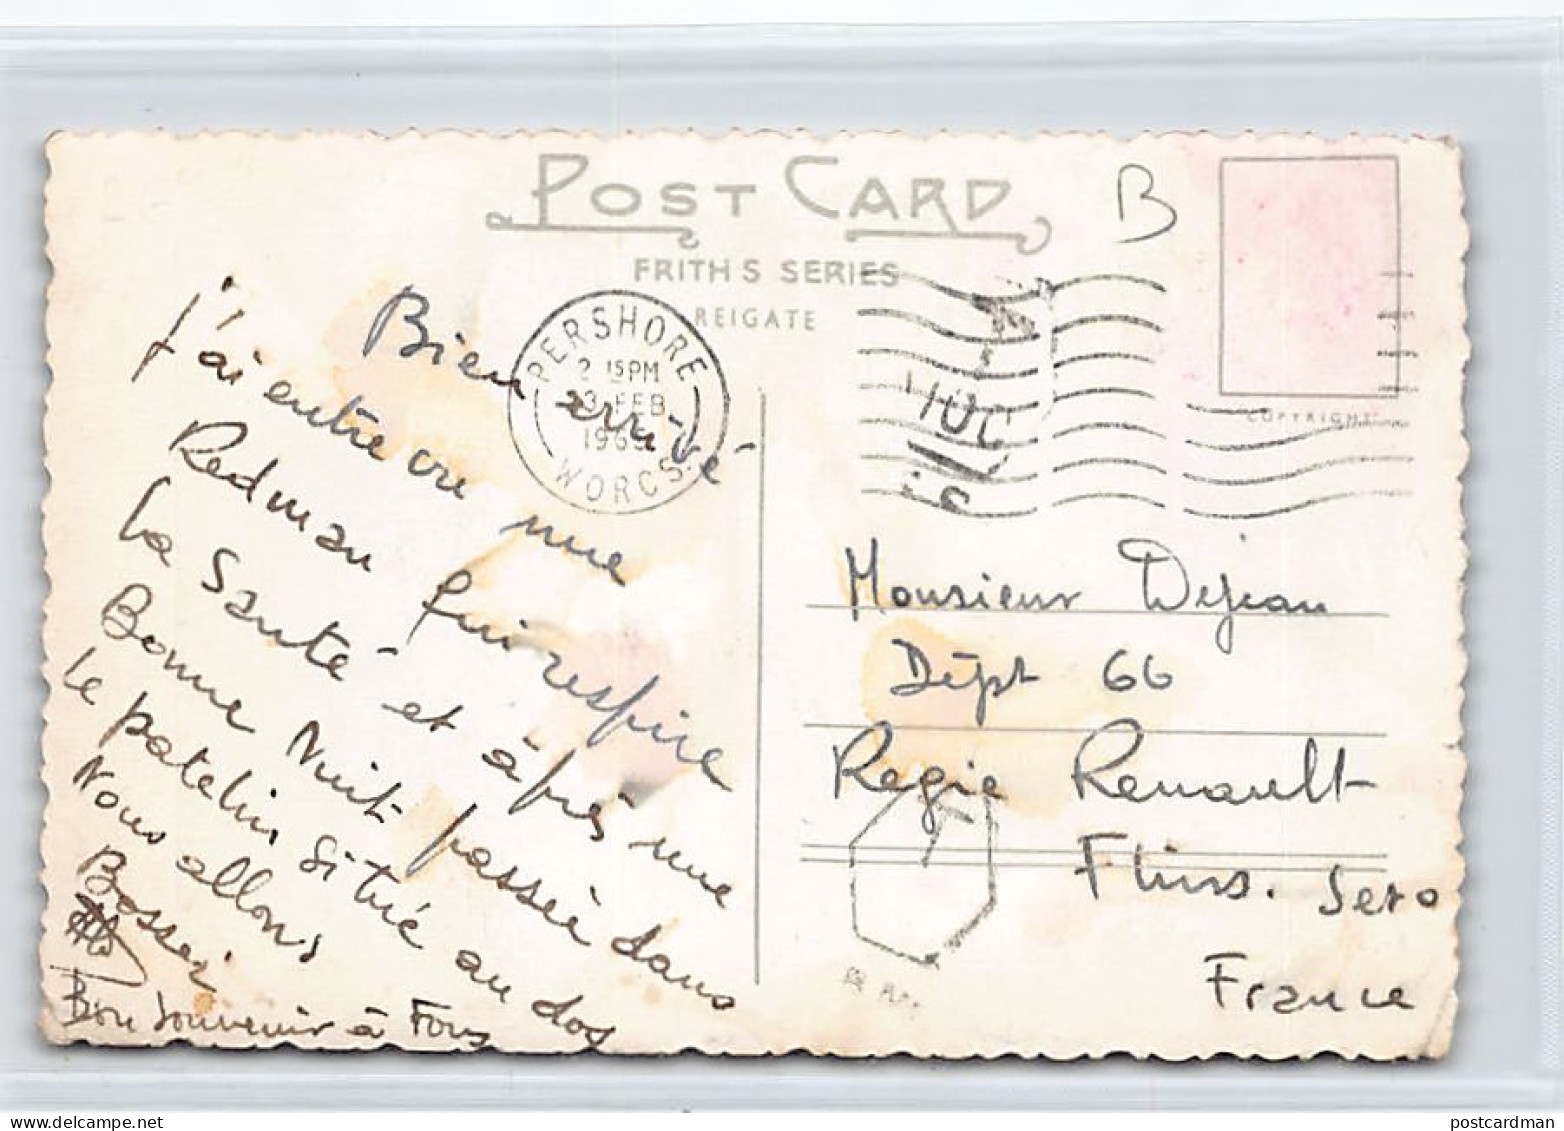 POST CARD
B
FRITH'S SERIES
REIGATE
COPYRIGHT
PERSHORE
2 15 PM
23 FEB
196
WORCS.
Bien arrivé
J'ai entre vu une
Redman qui respire
la Santé et après une
Bonne Nuit passée dans
le patelin situé au dos
Nous allons
Bosser
Bon Souvenir à Tous
Monsieur Dejean
Dépt 66
Regie Renault
Flins. Seto
France
T
postcardman